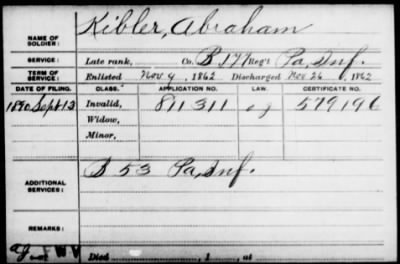 NAME OF SOLDIER: Kibler, Abraham
SERVICE: Late rank, Co. B 177 Reg't Pa, Inf.
TERM OF SERVICE: Enlisted Nov. 9, 1862 Discharged Nov 26, 1862
DATE OF FILING. CLASS. APPLICATION NO. LAW. CERTIFICATE NO.
1890 Sept 13 Invalid, 811311 579196
Widow,
Minor,
ADDITIONAL SERVICES: B 53 Pa, Inf.
REMARKS:
Died , 1 , at